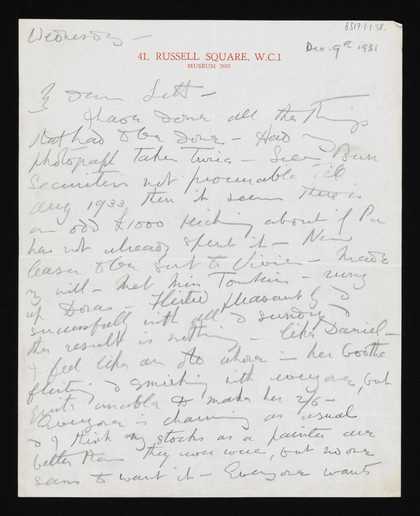 8317.1.1.58.
Wednesday –
Dec. 9th 1931
41, RUSSELL SQUARE, W.C.1
MUSEUM
My dear Lett –
I have done all the things
that had to be done – Had my
photograph taken twice – Seen
Securities not procurable till
Aug 1933, then it seems there is
an odd £1000 kicking about if Pa
has not already spent it – New
lease to be sent to Vivien – Made
my will – Met Miss Tomkins – rung
up Doras – Flirted pleasantly &
successfully with all & sundry &
the result is nothing – like Daniel –
I feel like an old whore in her booth
flirting & smirking with everyone, but
quite unable to make her 2/6 –
Everyone is charming as usual
& I think my stocks as a painter are
better than they ever were, but no one
seems to want it – Everyone wants